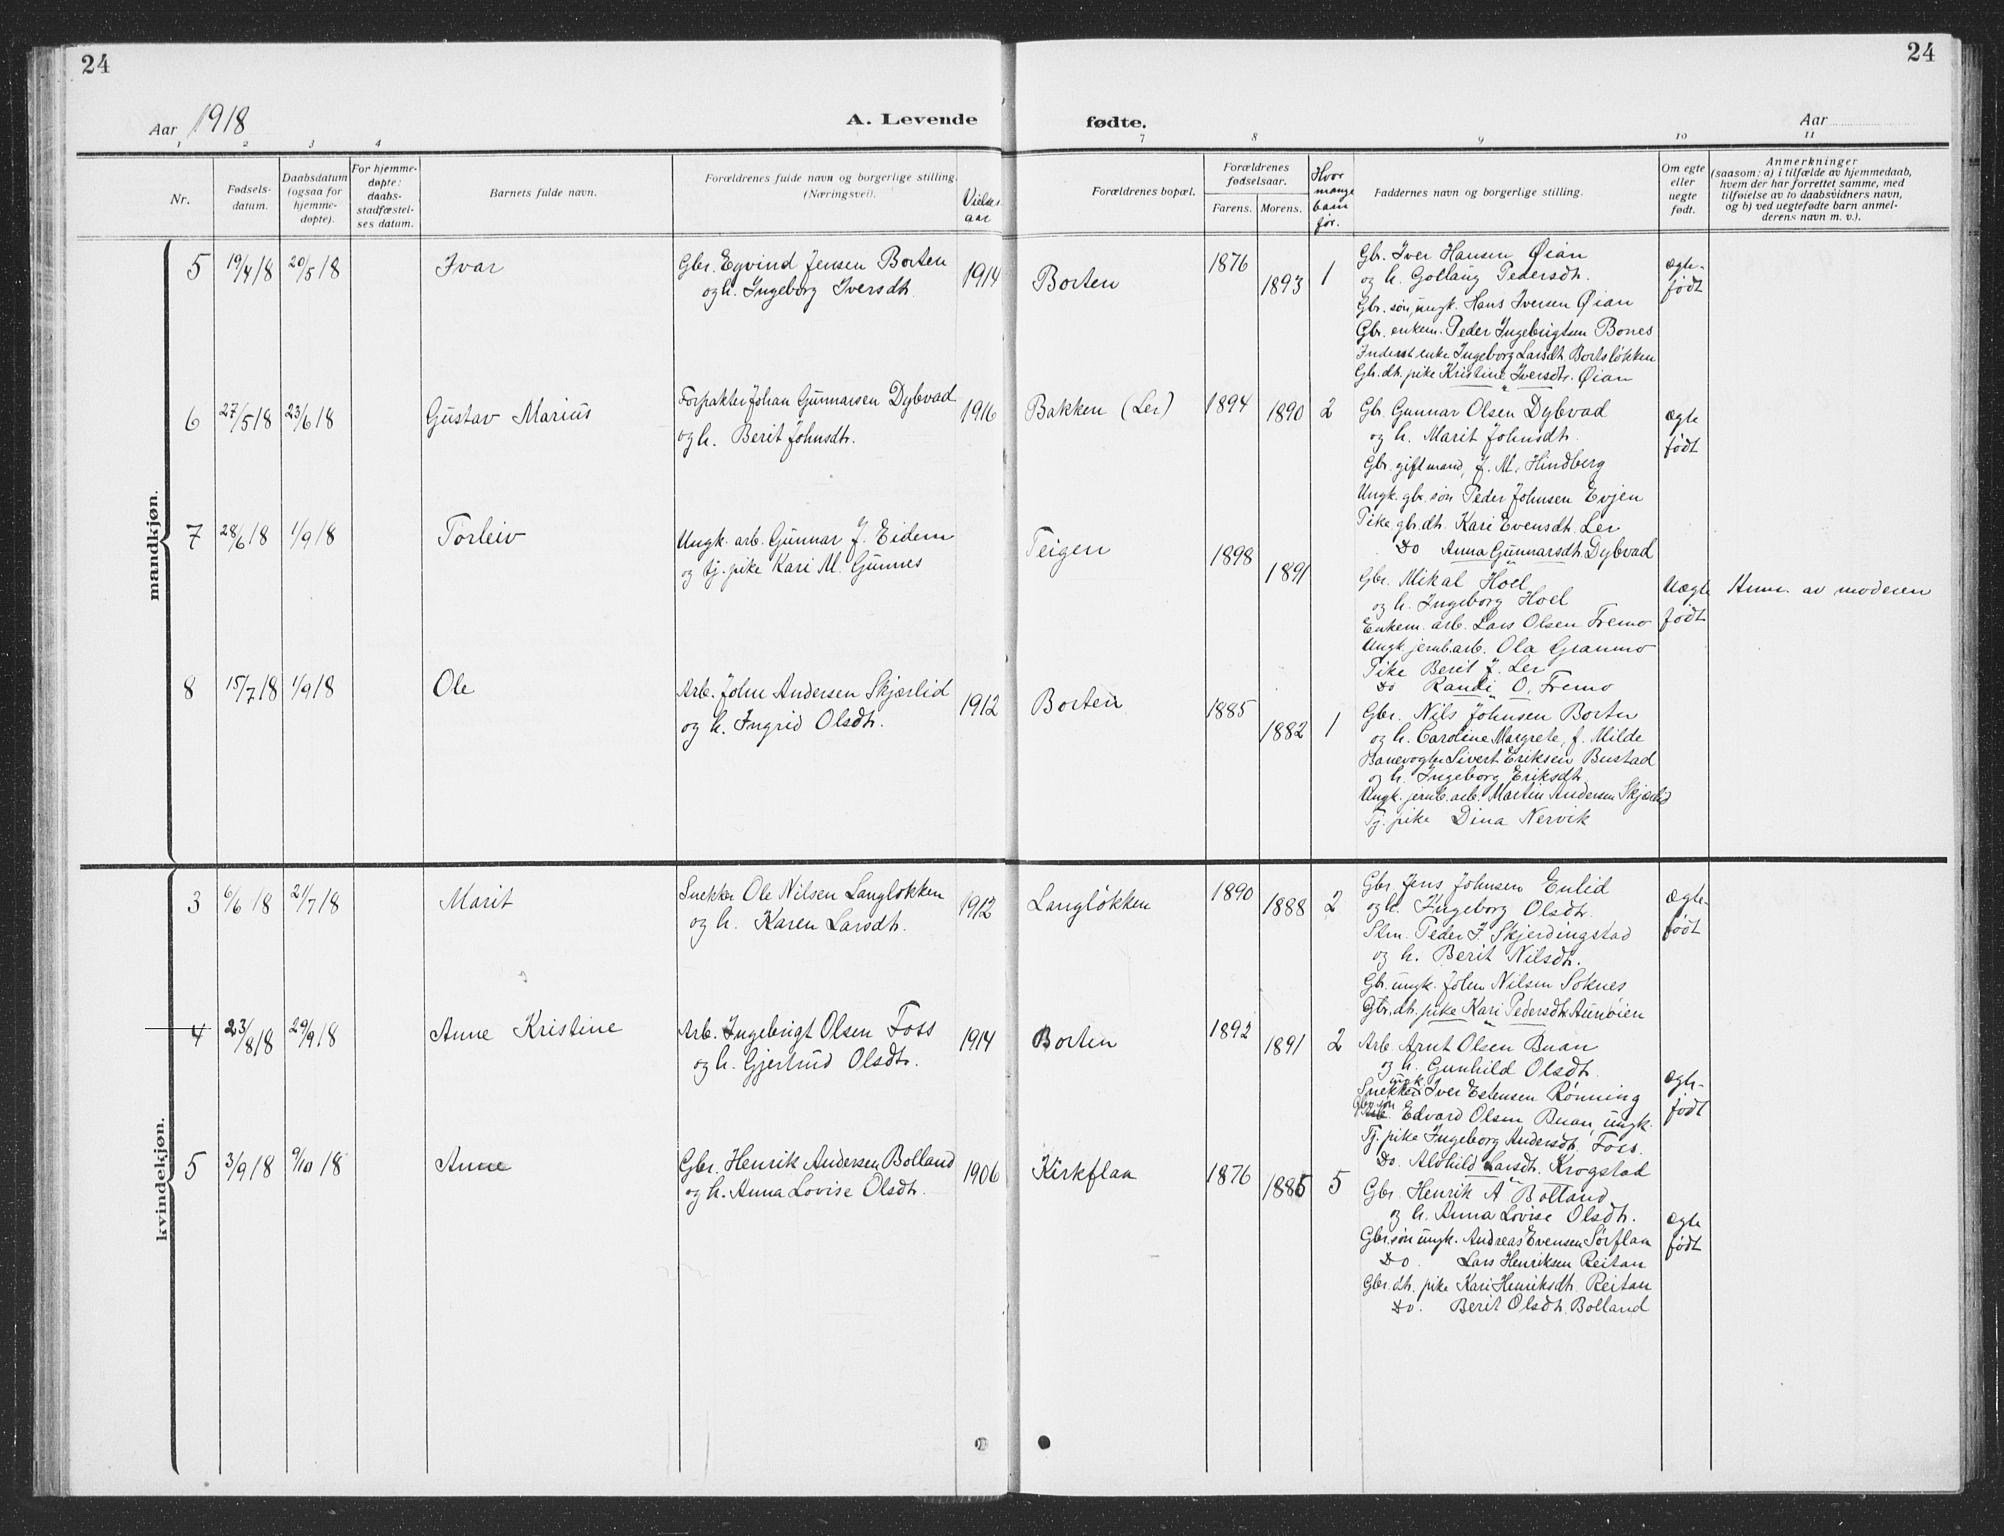 24
24
Aar 1918
A. Levende
fødte.
Aar
1 2 3 4
7 8 9 10 11
Nr.
Fødsels-
datum.
Daabsdatum
(ogsaa for
hjemme-
døpte).
For hjemme-
døpte:
daabs-
stadfæstel-
ses datum.
Barnets fulde navn.
Forældrenes fulde navn og borgerlige stilling.
(Næringsvei).
Vielses
aar
Forældrenes bopæl.
Forældrenes
fødselsaar.
Farens. Morens.
Hvor
mange
barn
før.
Faddernes navn og borgerlige stilling.
Om egte
eller
uegte
født.
Anmerkninger
(saasom: a) i tilfælde av hjemmedaab,
hvem der har forrettet samme, med
tilføielse av to daabsvidners navn,
og b) ved uegtefødte barn anmel-
derens navn m. v.).
mandkjøn.
5 19/4 18 20/5 18 Ivar
Gbr. Eyvind Jensen Borten
og h. Ingeborg Iversdtr.
1914 Borten 1876 1893 1
Gbr. Iver Hansen Øian
og h. Gollaug Pedersdt.
Gbr. søn, ungk. Hans Iversen Øian
Gbr. enkem. Peder Ingebrigtsen Bones
Inderst enke Ingeborg Larsdt. Bortsløkken
Gbr. dt. pike Kristine Iversdtr. Øian
ægte-
født
6 27/5 18 23/6 18 Gustav Marius
Forpakter Johan Gunnarsen Dybvad
og h. Berit Johnsdtr.
1916 Bakken (Ler) 1894 1890 2
Gbr. Gunnar Olsen Dybvad
og h. Marit Johnsdt.
Gbr. gift mand, J. M. Hindberg
Ungk. gbr. søn Peder Johnsen Evjen
Pike gbr. dt. Kari Evensdt Ler
Do Anna Gunnarsdt Dybvad
ægte
født
7 28/6 18 1/9 18 Torleiv
Ungk. arb. Gunnar J. Eidem
og tj. pike Kari M. Gunnes
Teigen 1898 1891
Gbr. Mikal Hoel
og h. Ingeborg Hoel
Enkem. arb. Lars Olsen Fremo
Ungk. jernb.arb. Ola Granmo
Pike Berit J. Ler
Do Randi O. Fremo
Uægte
født
Anm. av moderen
8 15/7 18 1/9 18 Ole
Arb. John Andersen Skjærlid
og h. Ingrid Olsdtr.
1912 Borten 1885 1882 1
Gbr. Nils Johnsen Borten
og h. Caroline Margrete, f. Milde
Banevogter Sivert Eriksen Bustad
og h. Ingeborg Eriksdt.
Ungk. jernb.arb. Martin Andersen Skjærlid
Tj. pike Dina Nervik
kvindekjøn.
3 6/6 18 21/7 18 Marit
Snekker Ole Nilsen Langløkken
og h. Karen Larsdtr.
1912 Langløkken 1890 1888 2
Gbr. Jens Johnsen Enlid
og h. Ingeborg Olsdtr.
Slm. Peder J. Skjerdingstad
og h. Berit Nilsdtr.
Gbr. ungk. John Nilsen Søknes
Gbr. dt. pike Kari Pedersdt.
ægte-
født
4 23/8 18 29/9 18 Anne Kristine
Arb. Ingebrigt Olsen Foss
og h. Gjertrud Olsdtr.
1914 Borten 1892 1891 2
Arb. Arnt Olsen Buan
og h. Gunhild Olsdtr.
Snekker ungk. Iver Estensen Rønning
Gbr. søn Edvard Olsen Buan, ungk.
Tj. pike Ingeborg Andersdt. Foss.
Do. Alvhild Larsdt. Krogstad
ægte-
født
5 3/9 18 9/10 18 Anne
Gbr. Henrik Andersen Bolland
og h. Anna Lovise Olsdtr.
1906 Kirkflaa 1876 1885 5
Gbr. Henrik A. Bolland
og h. Anna Lovise Olsdtr.
Gbr. søn ungk. Andreas Evensen Sørflaa
Do. Lars Henriksen Reitan
Gbr. dt. pike Kari Henriksdt. Reitan
Do. Berit Olsdt. Bolland
ægte
født